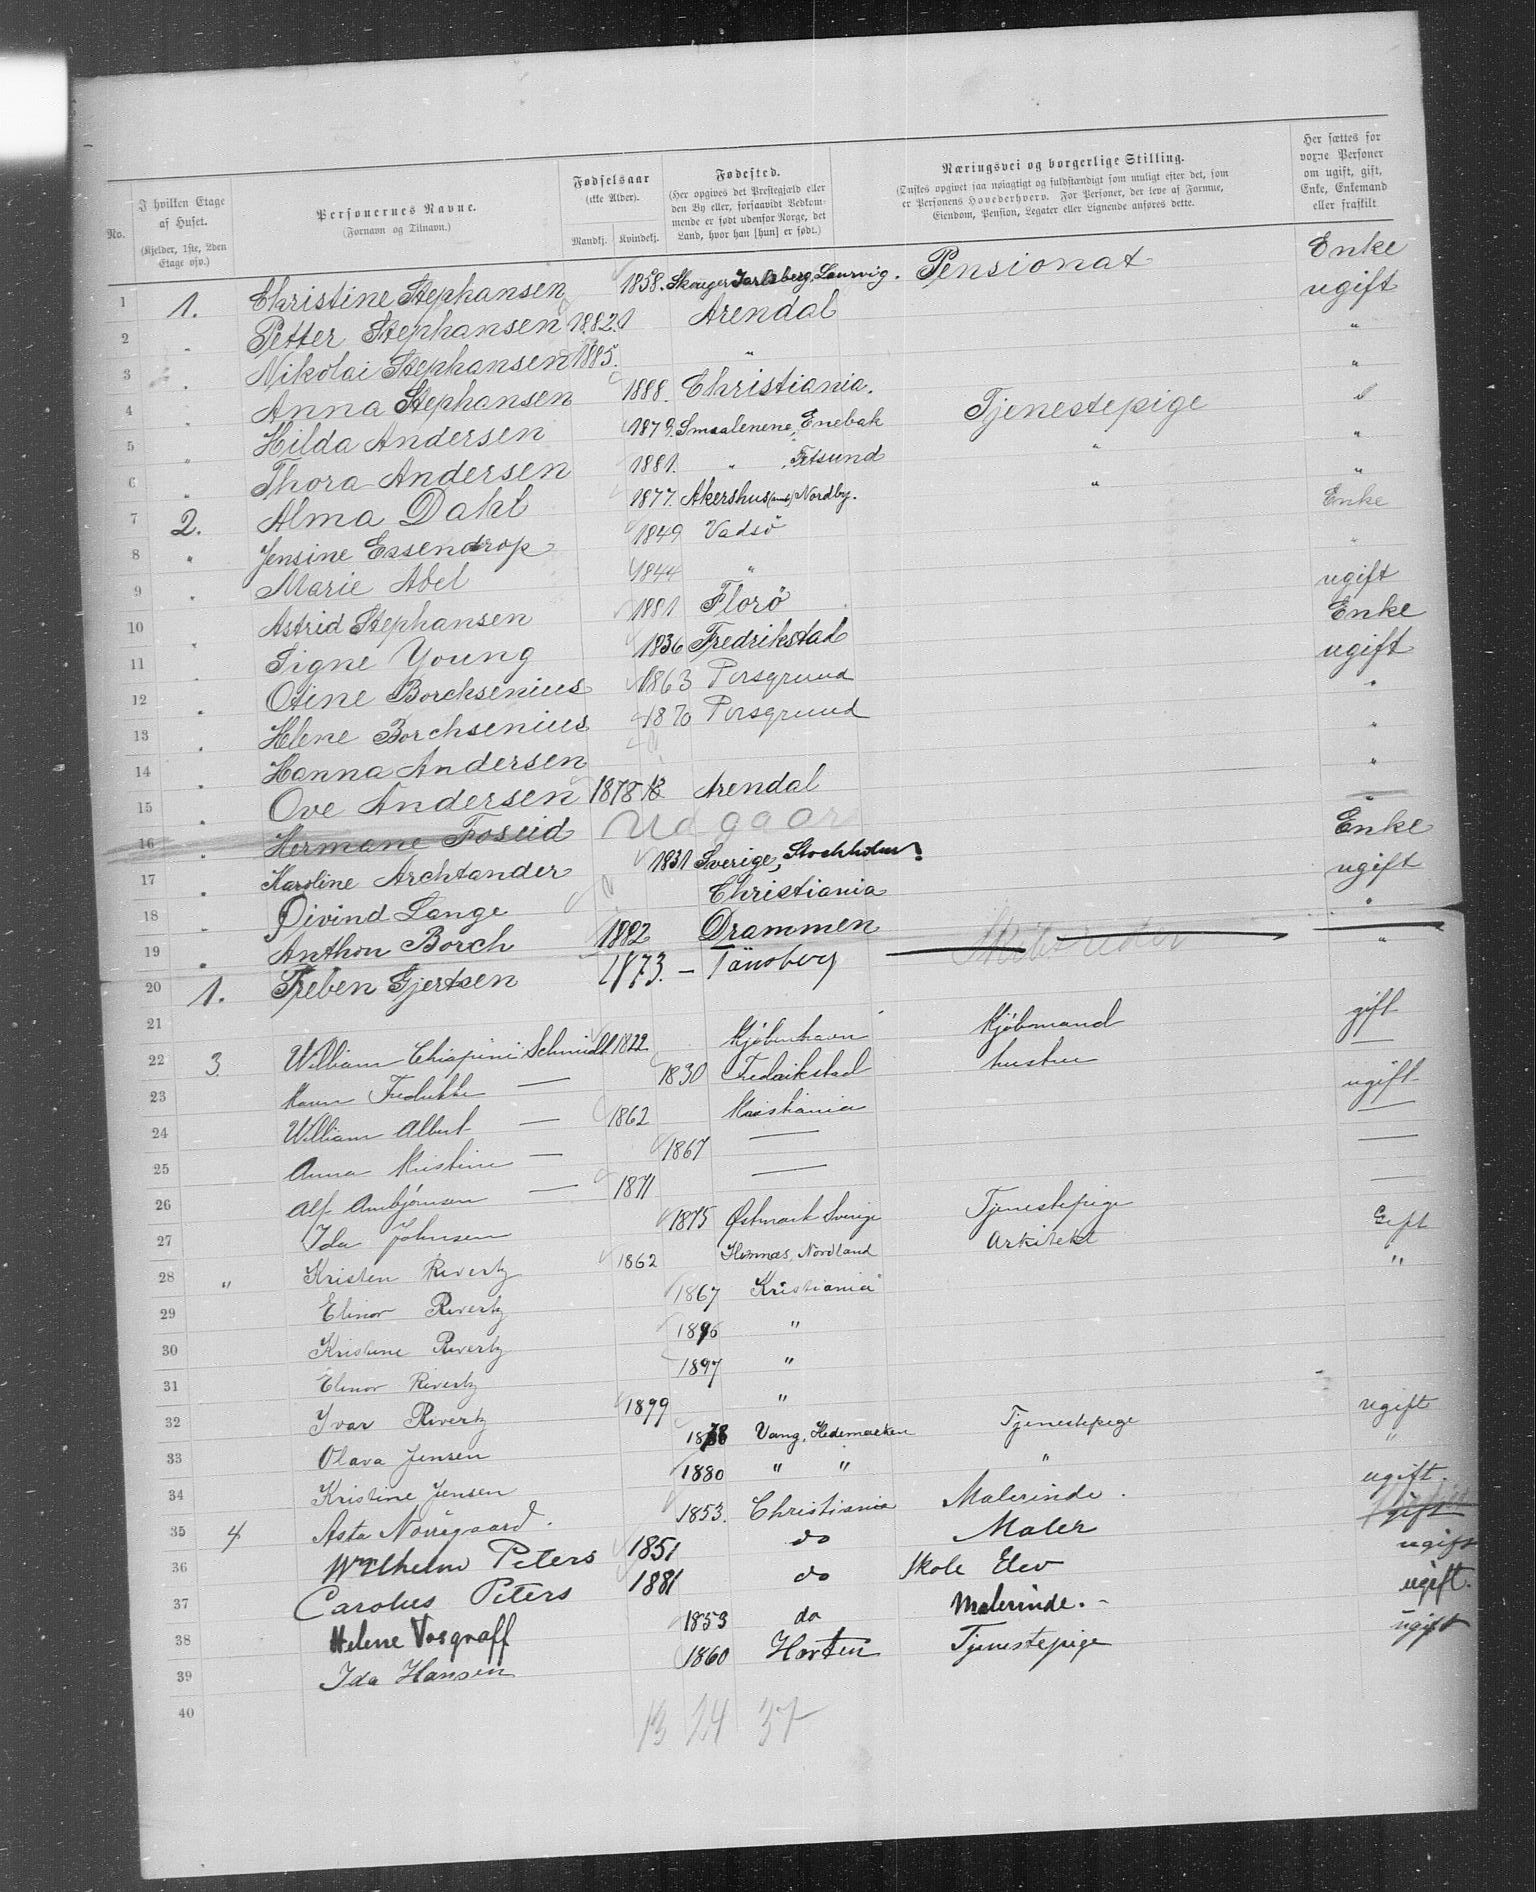 No.
I hvilken Etage af Huset.
(Kjelder, 1ste, 2den Etage osv.)
Personernes Navne.
(Fornavn og Tilnavn.)
Fødselsaar
(ikke Alder).
Mandkj. Kvindekj.
Fødested.
(Her opgives det Prestegjæld eller
den By eller, forsaavidt Vedkom-
mende er født udenfor Norge, det
Land, hvor han [hun] er født.)
Næringsvei og borgerlige Stilling.
(Ønskes opgivet saa nøiagtigt og fuldstændigt som muligt efter det, som
er Personens Hovederhverv. For Personer, der leve af Formue,
Eiendom, Pension, Legater eller Lignende anføres dette.
Her sættes for
voxne Personer
om ugift, gift,
Enke, Enkemand
eller fraskilt.
1 1. Christine Stephansen 1858. Skouger Jarlsberg, Laurvig. Pensionat Enke
2 " Petter Stephansen 1882. Arendal ugift
3 " Nikolai Stephansen 1885. " "
4 " Anna Stephansen 1888. Christiania. "
5 " Hilda Andersen 1879. Smaalenene, Enebak Tjenestepige "
6 " Thora Andersen 1881. " Fetsund " "
7 2. Alma Dahl 1877. Akershus (amt) Nordby. " "
8 " Jensine Essendrop 1849 Vadsö Enke
9 " Marie Abel 1844 " "
10 " Astrid Stephansen 1881 Florö ugift
11 " Signe Young 1836 Fredrikstad Enke
12 " Otine Borchsenius 1863 Porsgrund ugift
13 " Helene Borchsenius 1870 Porsgrund "
14 " Hanna Andersen "
15 " Ove Andersen 1878 Arendal "
16 " Hermane Foseid Udgaar "
17 " Karoline Archtander 1831 Sverige, Stockholm. Enke
18 " Øivind Lange Christiania ugift
19 " Anthon Borch 1882 Drammen "
20 1. Preben Gjertsen 1873. — Tönsberg Skibsreder "
21
22 3. William Chiapini Schmidt 1822 Kjöbenhavn Kjöbmand gift
23 Maren Fredrikke — 1830 Fredrikstad hustru —
24 William Albert — 1862 Kristiania ugift
25 Anna Kristine — 1867 — —
26 Alf Arnbjörnsen — 1871 — —
27 Ida Johnsen 1875 Østmark Sverige Tjenestepige —
28 " Kristen Rivertz 1862 Hemnæs, Nordland Arkitekt Gift
29 Elinor Rivertz 1867 Kristiania "
30 Kristine Rivertz 1896 "
31 Elinor Rivertz 1897 "
32 Ivar Rivertz 1899 "
33 Olava Jensen 1878 Vang, Hedemarken Tjenestepige ugift
34 Kristine Jensen 1880 " " " "
35 4 Asta Nörregaard. 1853. Christiania Malerinde. ugift.
36 Wilhelm Peters 1851 do Maler gift
37 Carolus Peters 1881 do Skole Elev ugift
38 Helene Vosgraff 1853 do Malerinde. - ugift.
39 Ida Hansen 1860 Horten Tjenestepige ugift
40
13 24 37